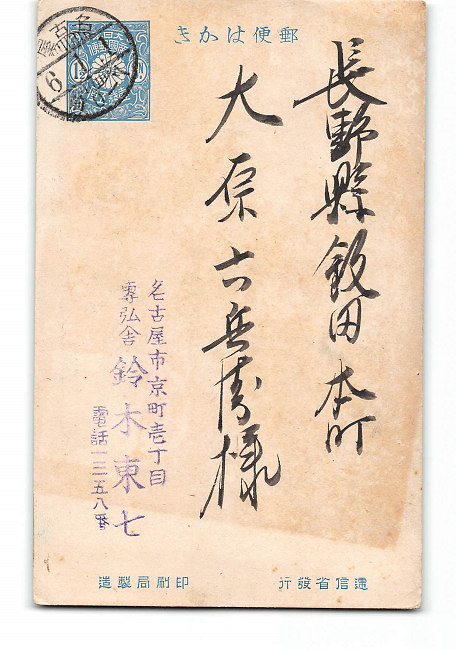 郵便はかき
長野縣飯田本町
大原六兵衛様
名古屋市京町壱丁目
專弘舎
鈴木東七
電話一三五八番
遞信省發行
印刷局製造